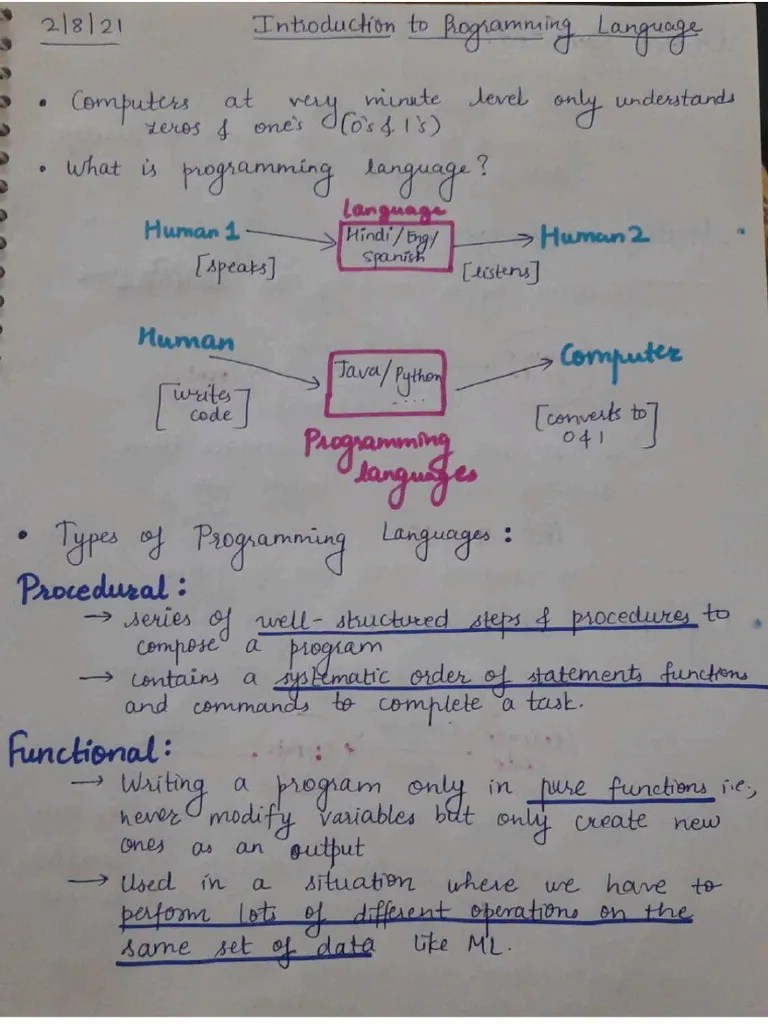 2/8/21 Introduction to Programming Language
• Computers at very minute level only understands
zeros & one's (0's & 1's)
• What is programming language?
Language
Human 1 Hindi/Eng/ Human 2
Spanish
[speaks] [listens]
Human
Java/Python Computer
....
[writes
code]
[converts to
0 & 1]
Programming
languages
• Types of Programming Languages:
Procedural:
→ series of well-structured steps & procedures to
compose a program
→ contains a systematic order of statements functions
and commands to complete a task.
Functional:
→ Writing a program only in pure functions i.e.,
never modify variables but only create new
ones as an output
→ Used in a situation where we have to
perform lots of different operations on the
same set of data like ML.